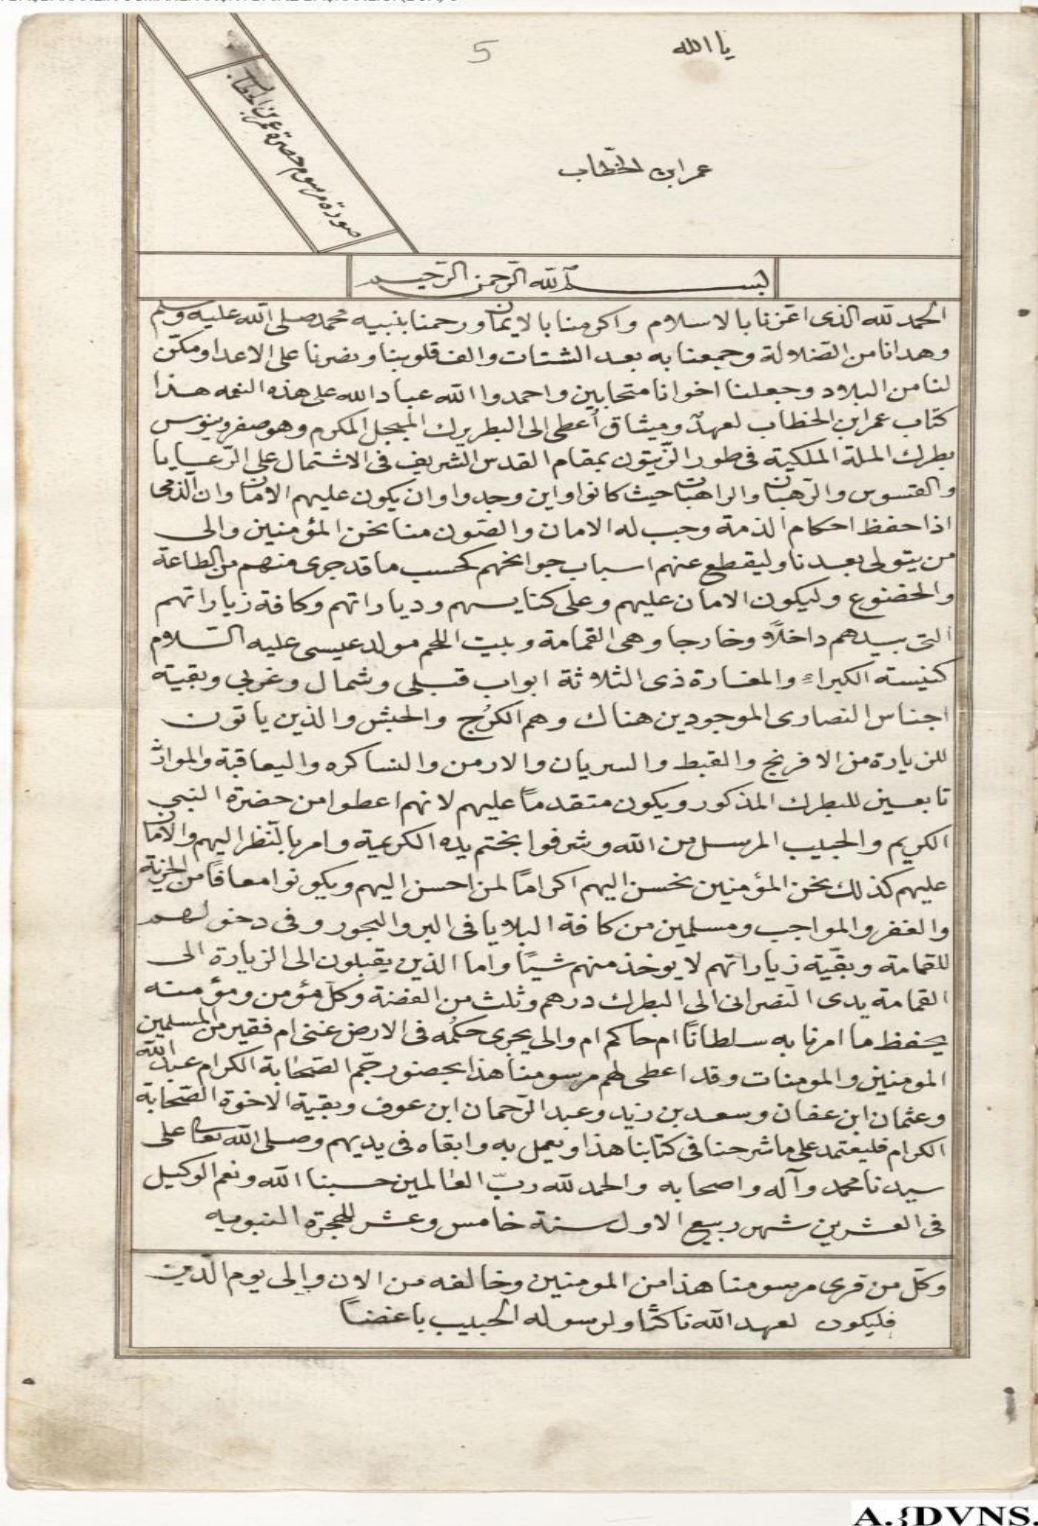 5
يا الله
صورة مرسوم حضرة عمر بن الخطاب
عمر ابن الخطاب
بسم الله الرحمن الرحيم
الحمد لله الذى اعزنا بالاسلام واكرمنا بالايمان ورحمنا بنبيه محمد صلى الله عليه وسلم
وهدانا من الضلالة وجمعنا به بعد الشتات والف قلوبنا ونصرنا على الاعدا ومكن
لنا من البلاد وجعلنا اخوانا متحابين واحمدوا الله عباد الله على هذه النعمه هذا
كتاب عمر ابن الخطاب لعهد وميثاق أعطى الى البطريرك المبجل المكرم وهو صفرونيوس
بطرك الملة الملكية فى طور الزيتون بمقام القدس الشريف فى الاشتمال على الرعايا
والقسوس والرهبان والراهبات حيث كانوا واين وجدوا وان يكون عليهم الامان وان الذمى
اذا حفظ احكام الذمة وجب له الامان والصون منا نحن المؤمنين والى
من يتولى بعدنا وليقطع عنهم اسباب جوانحهم كحسب ما قد جرى منهم من الطاعة
والخضوع وليكون الامان عليهم وعلى كنايسهم وديارانهم وكافة زياراتهم
التى بيدهم داخلا وخارجا وهى القمامة وبيت اللحم مولد عيسى عليه السلام
كنيسة الكبراء والمغارة ذى الثلاثة ابواب قبلى وشمال وغربى وبقية
اجناس النصارى الموجودين هناك وهم الكرج والحبش والذين ياتون
للزيارة من الافرنج والقبط والسريان والارمن والنساكره واليعاقبة والموارنة
تابعين للبطرك المذكور ويكون متقدما عليهم لانهم اعطوا من حضرة النبى
الكريم والحبيب المرسل من الله وشرفوا بختم يده الكريمة وامر بالنظر اليهم والامان
عليهم كذلك نحن المؤمنين نحسن اليهم اكراما لمن احسن اليهم ويكونوا معافا من الجزية
والغفر والمواجب ومسلمين من كافة البلايا فى البر والبحور وفى دخولهم
للقمامة وبقية زياراتهم لا يوخذ منهم شيا واما الذين يقبلون الى الزيارة الى
القمامة يدى النصرانى الى البطرك درهم وثلث من الفضة وكل مؤمن ومؤمنه
يحفظ ما امرنا به سلطانا ام حاكم ام والى يجرى حكمه فى الارض غنى ام فقير من المسلمين
المومنين والمومنات وقد اعطى لهم مرسومنا هذا بحضور جم الصحابة الكرام عبد الله
وعثمان ابن عفان وسعد بن زيد وعبد الرحمان ابن عوف وبقية الاخوة الصحابة
الكرام فليعتمد على ما شرحنا فى كتابنا هذا ويعمل به وابقاه فى يديهم وصلى الله تعالى على
سيدنا محمد وآله واصحابه والحمد لله رب العالمين حسبنا الله ونعم الوكيل
فى العشرين شهر ربيع الاول سنة خامس وعشر للهجرة النبويه
وكل من قرى مرسومنا هذا من المومنين وخالفه من الان والى يوم الدين
فليكون لعهد الله ناكثا ولرسوله الحبيب باغضا
A.{DVNS.